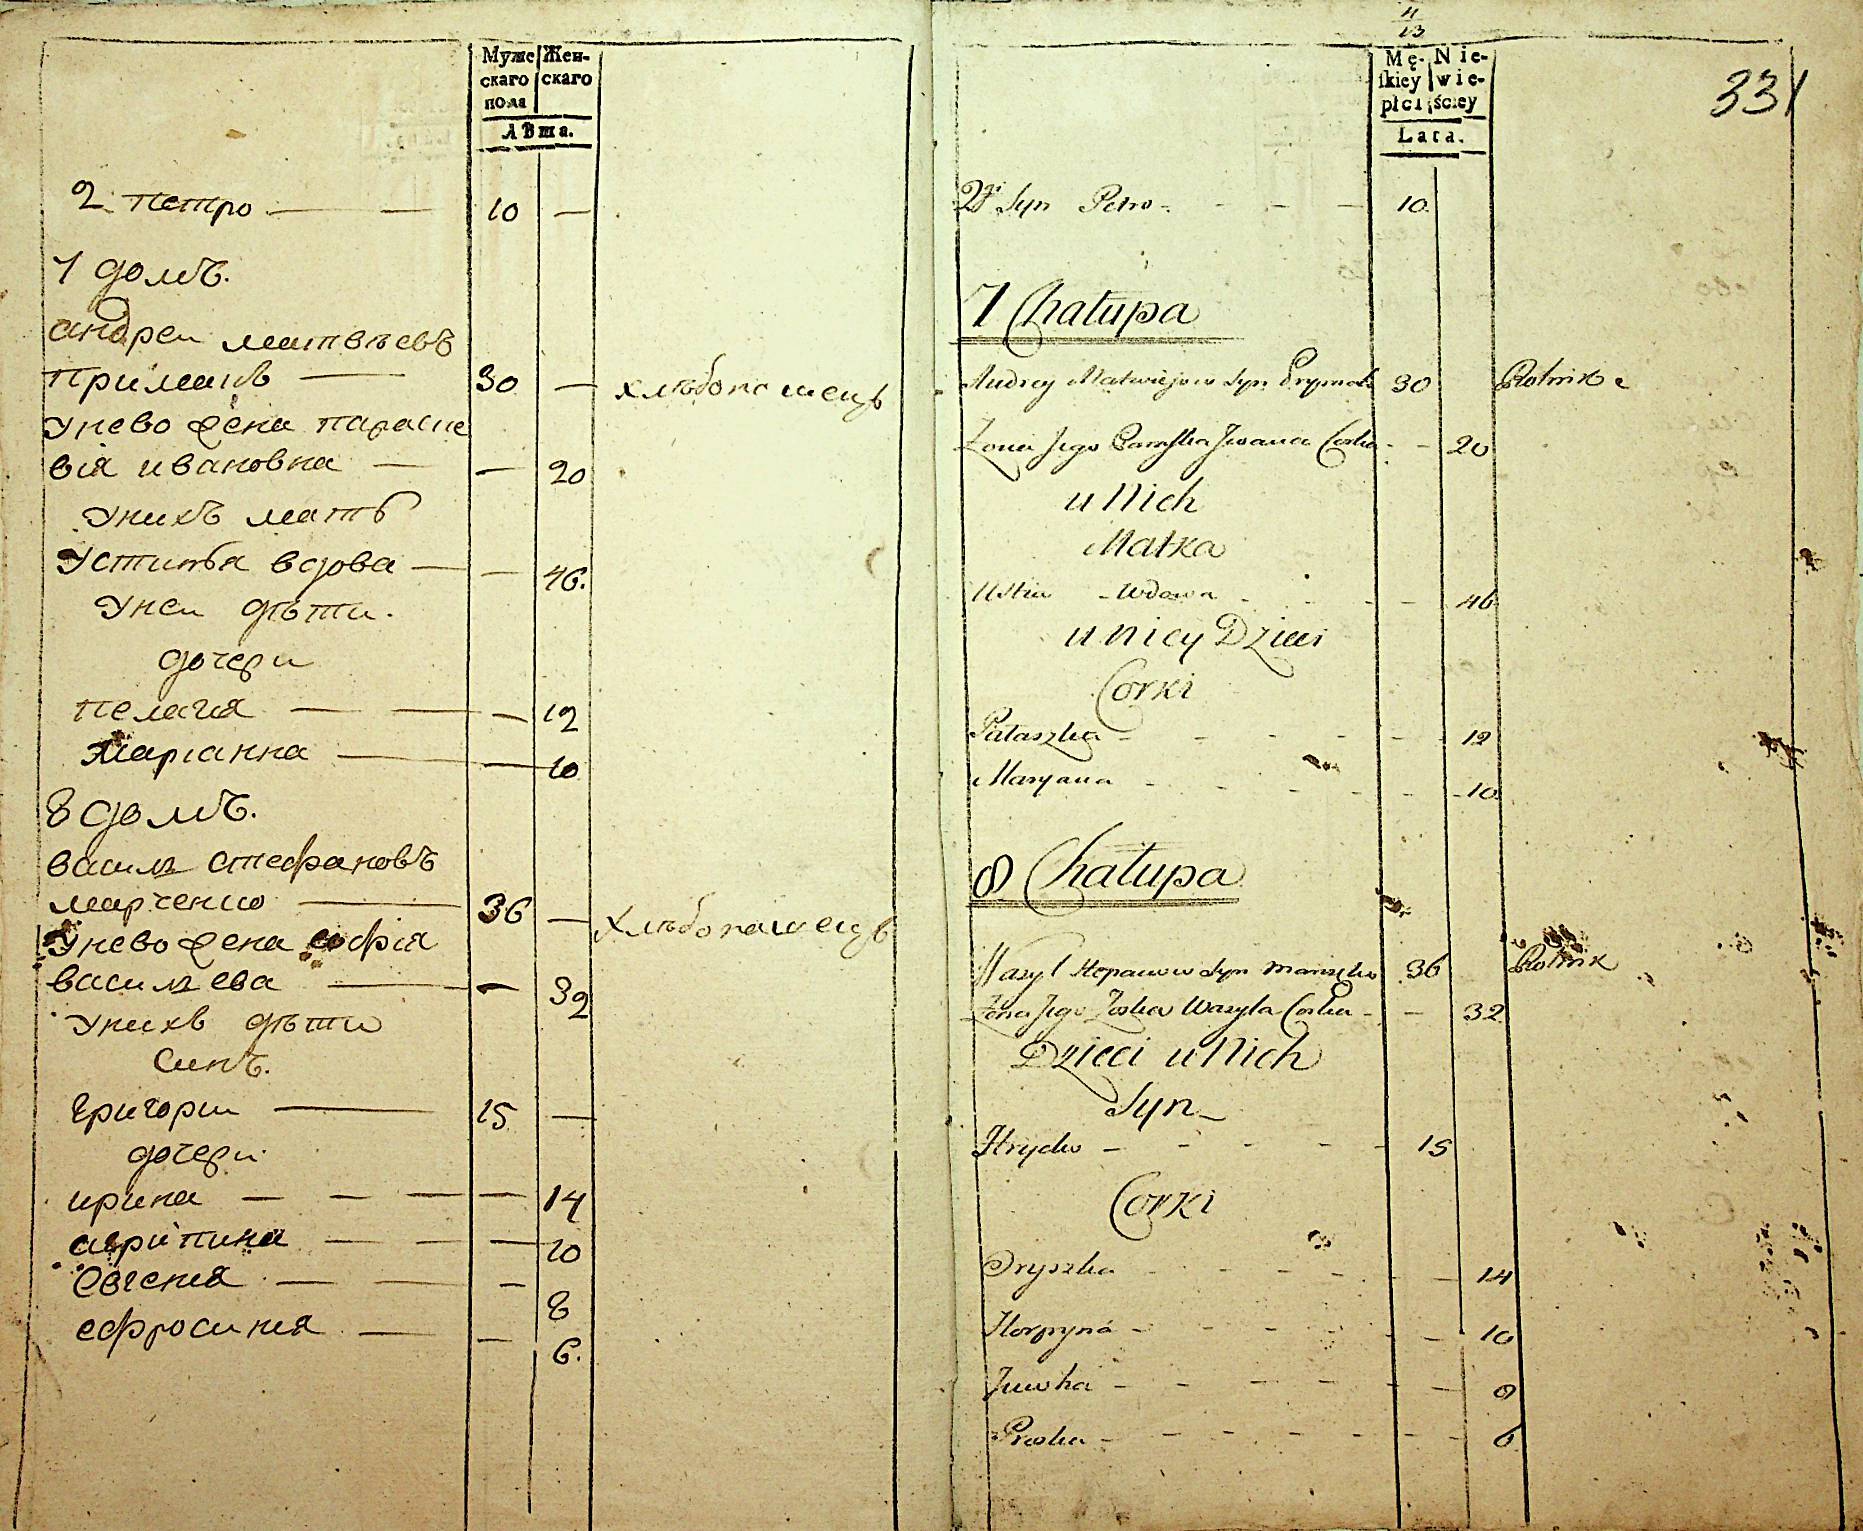 Муже Жен-
скаго скаго
пола
Лѣта.
2 петро 10
7 домъ.
андреи матвѣевъ
примакъ 30 хлѣбопашецъ
унево жена параске
вія ивановна 20
унихъ мать
устинья вдова 46.
унеи дѣти.
дочери
пелагия 12
Маріанна 10
8 домъ.
василь стефановъ
марченко 36 хлѣбопашецъ
унево жена софія
васильева 32
унихъ дѣти
синъ.
григории 15
дочери
ирина 14
агрипина 10
евгения 8
ефросиния 6.
11
13
331
Mę- Nie-
skiey wie-
płci ściey
Lata.
2gi Syn Petro 10
7 Chałupa
Andrey Matwiejow Syn Prymak 30 Rolnik
Żona Jego Paraska Iwana Corka 20
u Nich
Matka
Ustia Wdowa 46
u nicy Dzieci
Corki
Pałaszka 12
Maryana 10
8 Chałupa
Wasyl Stepanow Syn Marczenko 36 Rolnik
Żona Jego Zoska Wasyla Corka 32
Dzieci u Nich
Syn
Hryćko 15
Corki
Oryszka 14
Horpyna 10
Juwha 8
Proska 6